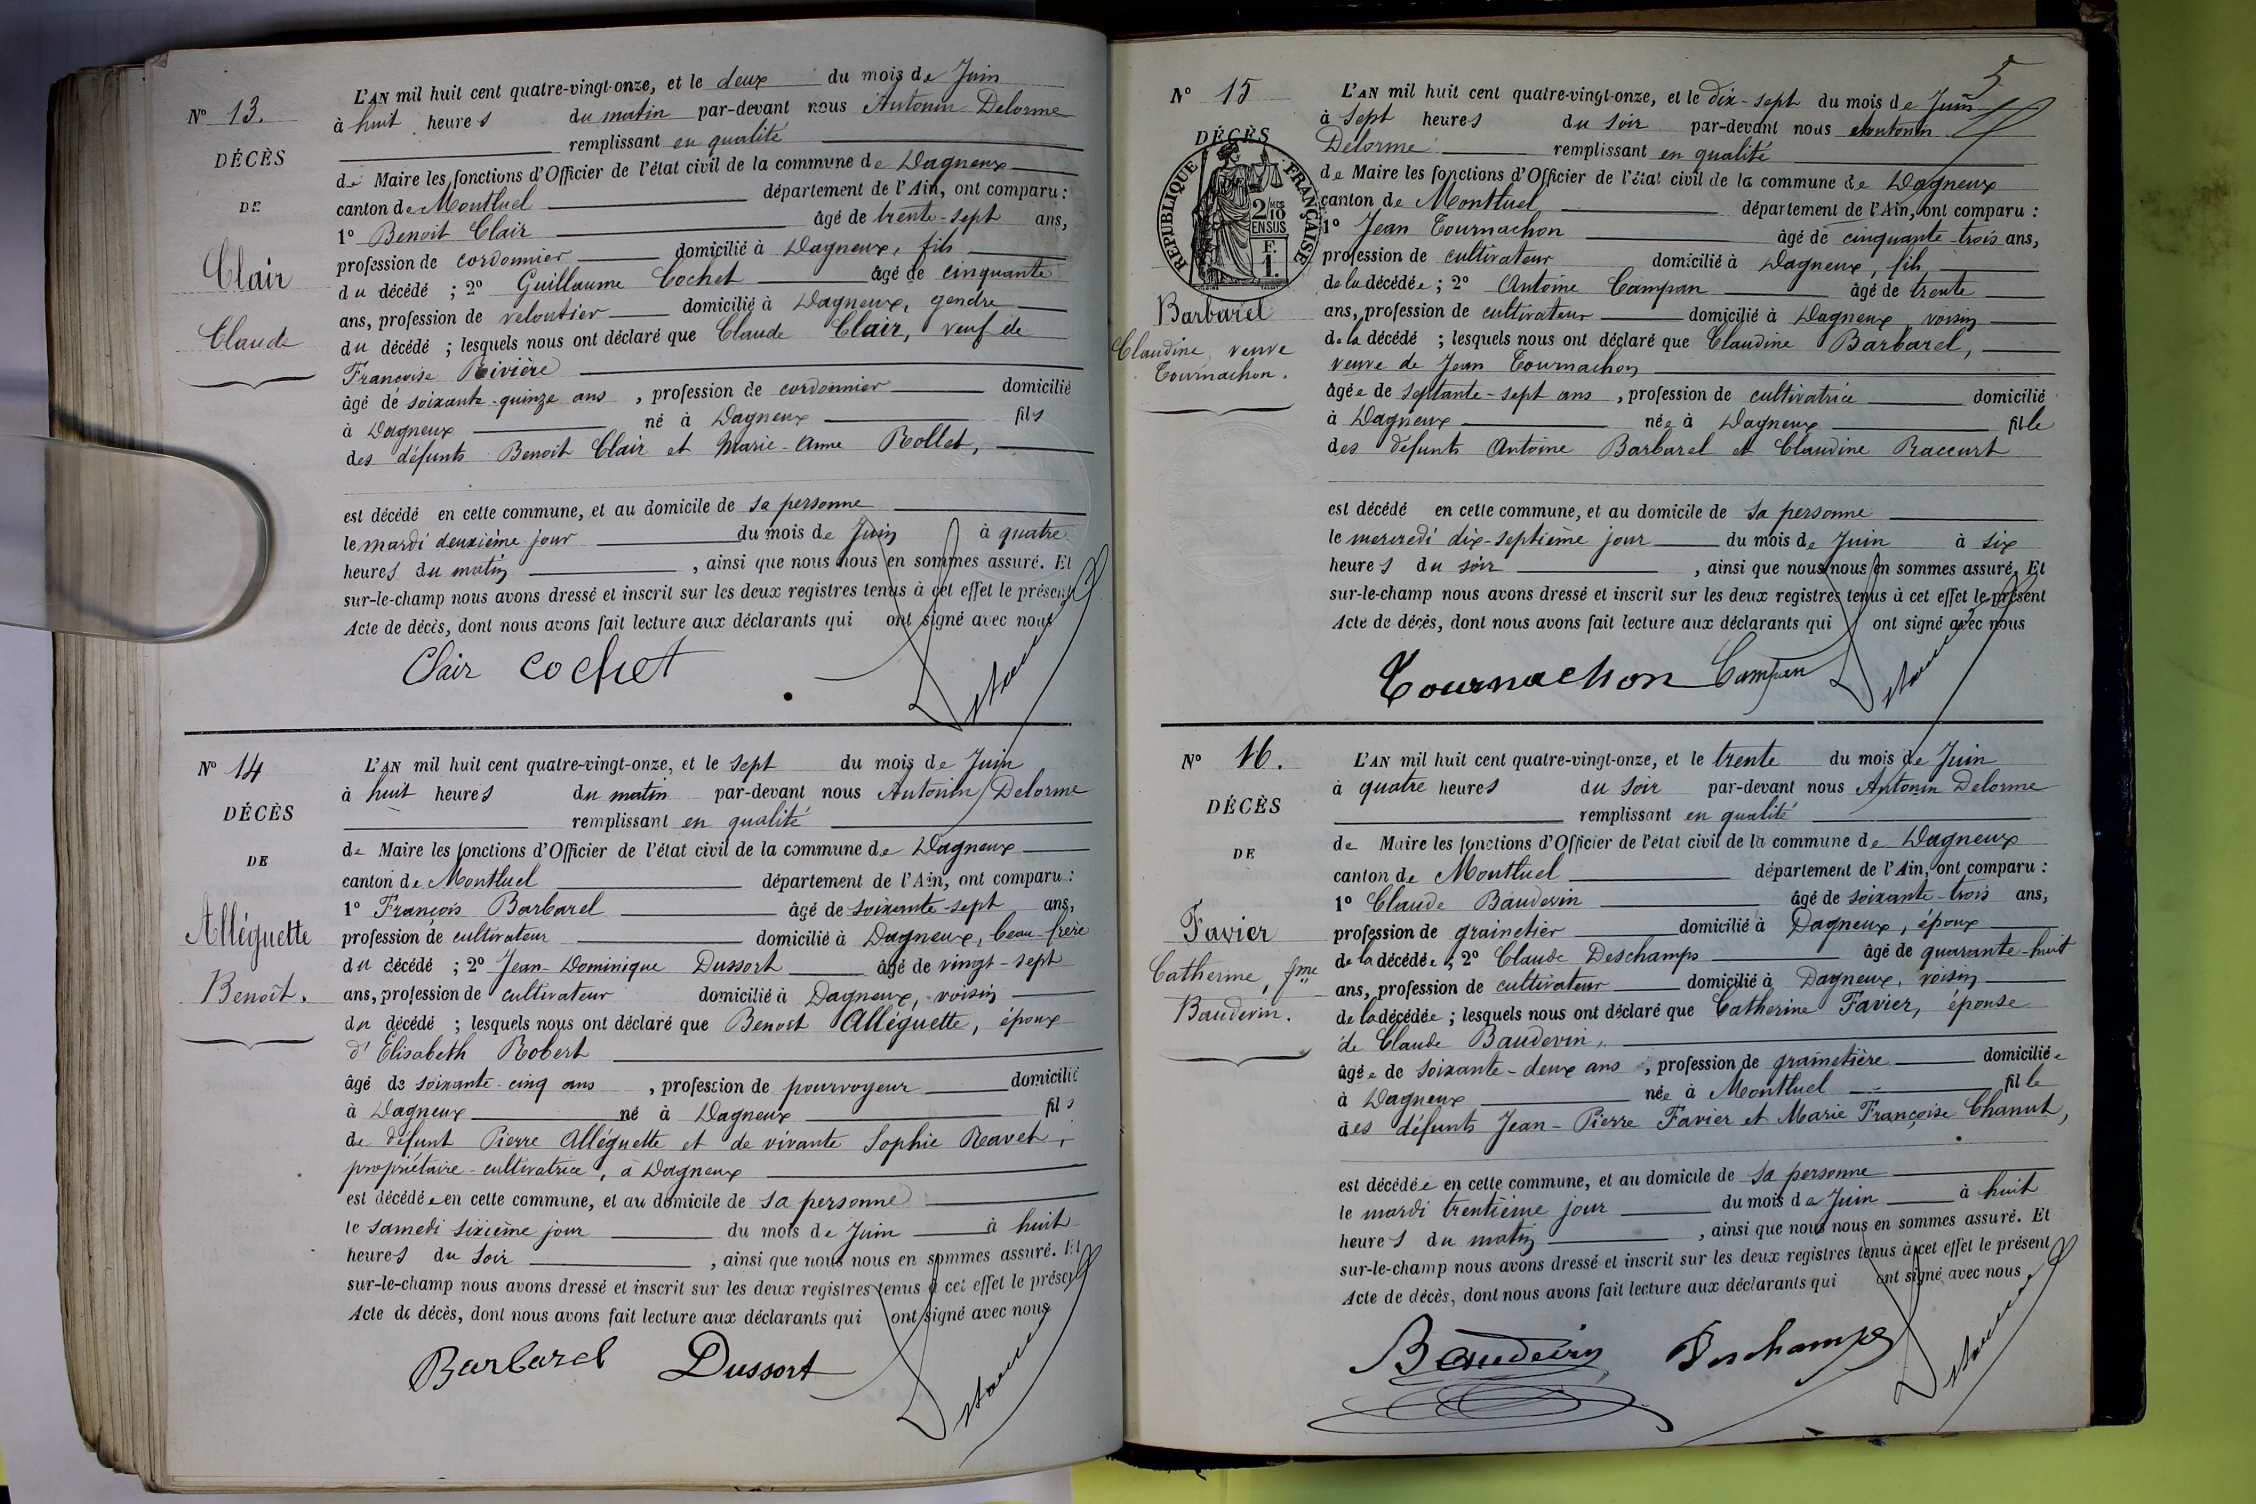 Nº 13.
DÉCÈS
DE
Clair
Claude
L'AN mil huit cent quatre-vingt-onze, et le deux du mois de Juin
à huit heures du matin par-devant nous Antonin Delorme
remplissant en qualité
de Maire les fonctions d'Officier de l'état civil de la commune de Dagneux
canton de Montluel département de l'Ain, ont comparu :
1º Benoit Clair âgé de trente-sept ans,
profession de cordonnier domicilié à Dagneux, fils
du décédé ; 2º Guillaume Cochet âgé de cinquante
ans, profession de veloutier domicilié à Dagneux, gendre
du décédé ; lesquels nous ont déclaré que Claude Clair, veuf de
Françoise Rivière
âgé de soixante-quinze ans , profession de cordonnier domicilié
à Dagneux né à Dagneux fils
des défunts Benoit Clair et Marie-Anne Rollet,
est décédé en cette commune, et au domicile de sa personne
le mardi deuxième jour du mois de Juin à quatre
heures du matin , ainsi que nous nous en sommes assuré. Et
sur-le-champ nous avons dressé et inscrit sur les deux registres tenus à cet effet le présent
Acte de décès, dont nous avons fait lecture aux déclarants qui ont signé avec nous
Clair Cochet Delorme
Nº 14
DÉCÈS
DE
Alléguette
Benoît.
L'AN mil huit cent quatre-vingt-onze, et le sept du mois de Juin
à huit heures du matin par-devant nous Antonin Delorme
remplissant en qualité
de Maire les fonctions d'Officier de l'état civil de la commune de Dagneux
canton de Montluel département de l'Ain, ont comparu :
1º François Barbarel âgé de soixante-sept ans,
profession de cultivateur domicilié à Dagneux, beau-frère
du décédé ; 2º Jean-Dominique Dussort âgé de vingt-sept
ans, profession de cultivateur domicilié à Dagneux, voisin
du décédé ; lesquels nous ont déclaré que Benoit Alléguette, époux
d'Elisabeth Robert
âgé de soixante-cinq ans , profession de pourvoyeur domicilié
à Dagneux né à Dagneux fils
de défunt Pierre Alléguette et de vivante Sophie Ravet,
propriétaire-cultivatrice, à Dagneux
est décédé en cette commune, et au domicile de sa personne
le samedi sixième jour du mois de Juin à huit
heures du soir , ainsi que nous nous en sommes assuré. Et
sur-le-champ nous avons dressé et inscrit sur les deux registres tenus à cet effet le présent
Acte de décès, dont nous avons fait lecture aux déclarants qui ont signé avec nous
Barbarel Dussort Delorme
5
Nº 15
DÉCÈS
RÉPUBLIQUE FRANÇAISE
2/10 EN SUS
F. 1.
Barbarel
Claudine, veuve
Tournachon.
L'AN mil huit cent quatre-vingt-onze, et le dix-sept du mois de Juin
à sept heures du soir par-devant nous Antonin
Delorme remplissant en qualité
de Maire les fonctions d'Officier de l'état civil de la commune de Dagneux
canton de Montluel département de l'Ain, ont comparu :
1º Jean Tournachon âgé de cinquante-trois ans,
profession de cultivateur domicilié à Dagneux, fils
de la décédée ; 2º Antoine Campan âgé de trente
ans, profession de cultivateur domicilié à Dagneux voisin
de la décédé ; lesquels nous ont déclaré que Claudine Barbarel,
veuve de Jean Tournachon
âgée de septante-sept ans , profession de cultivatrice domicilié
à Dagneux née à Dagneux fille
des défunts Antoine Barbarel et Claudine Raccurt
est décédé en cette commune, et au domicile de sa personne
le mercredi dix-septième jour du mois de Juin à six
heures du soir , ainsi que nous nous en sommes assuré. Et
sur-le-champ nous avons dressé et inscrit sur les deux registres tenus à cet effet le présent
Acte de décès, dont nous avons fait lecture aux déclarants qui ont signé avec nous
Tournachon Campan Delorme
Nº 16.
DÉCÈS
DE
Favier
Catherine, fme
Baudevin.
L'AN mil huit cent quatre-vingt-onze, et le trente du mois de Juin
à quatre heures du soir par-devant nous Antonin Delorme
remplissant en qualité
de Maire les fonctions d'Officier de l'état civil de la commune de Dagneux
canton de Montluel département de l'Ain, ont comparu :
1º Claude Baudevin âgé de soixante-trois ans,
profession de grainetier domicilié à Dagneux, époux
de la décédée ; 2º Claude Deschamps âgé de quarante-huit
ans, profession de cultivateur domicilié à Dagneux, voisin
de la décédée ; lesquels nous ont déclaré que Catherine Favier, épouse
de Claude Baudevin,
âgée de soixante-deux ans , profession de grainetière domiciliée
à Dagneux née à Montluel fille
des défunts Jean-Pierre Favier et Marie Françoise Chanut,
est décédée en cette commune, et au domicile de sa personne
le mardi trentième jour du mois de Juin à huit
heures du matin , ainsi que nous nous en sommes assuré. Et
sur-le-champ nous avons dressé et inscrit sur les deux registres tenus à cet effet le présent
Acte de décès, dont nous avons fait lecture aux déclarants qui ont signé avec nous
Baudevin Deschamps Delorme